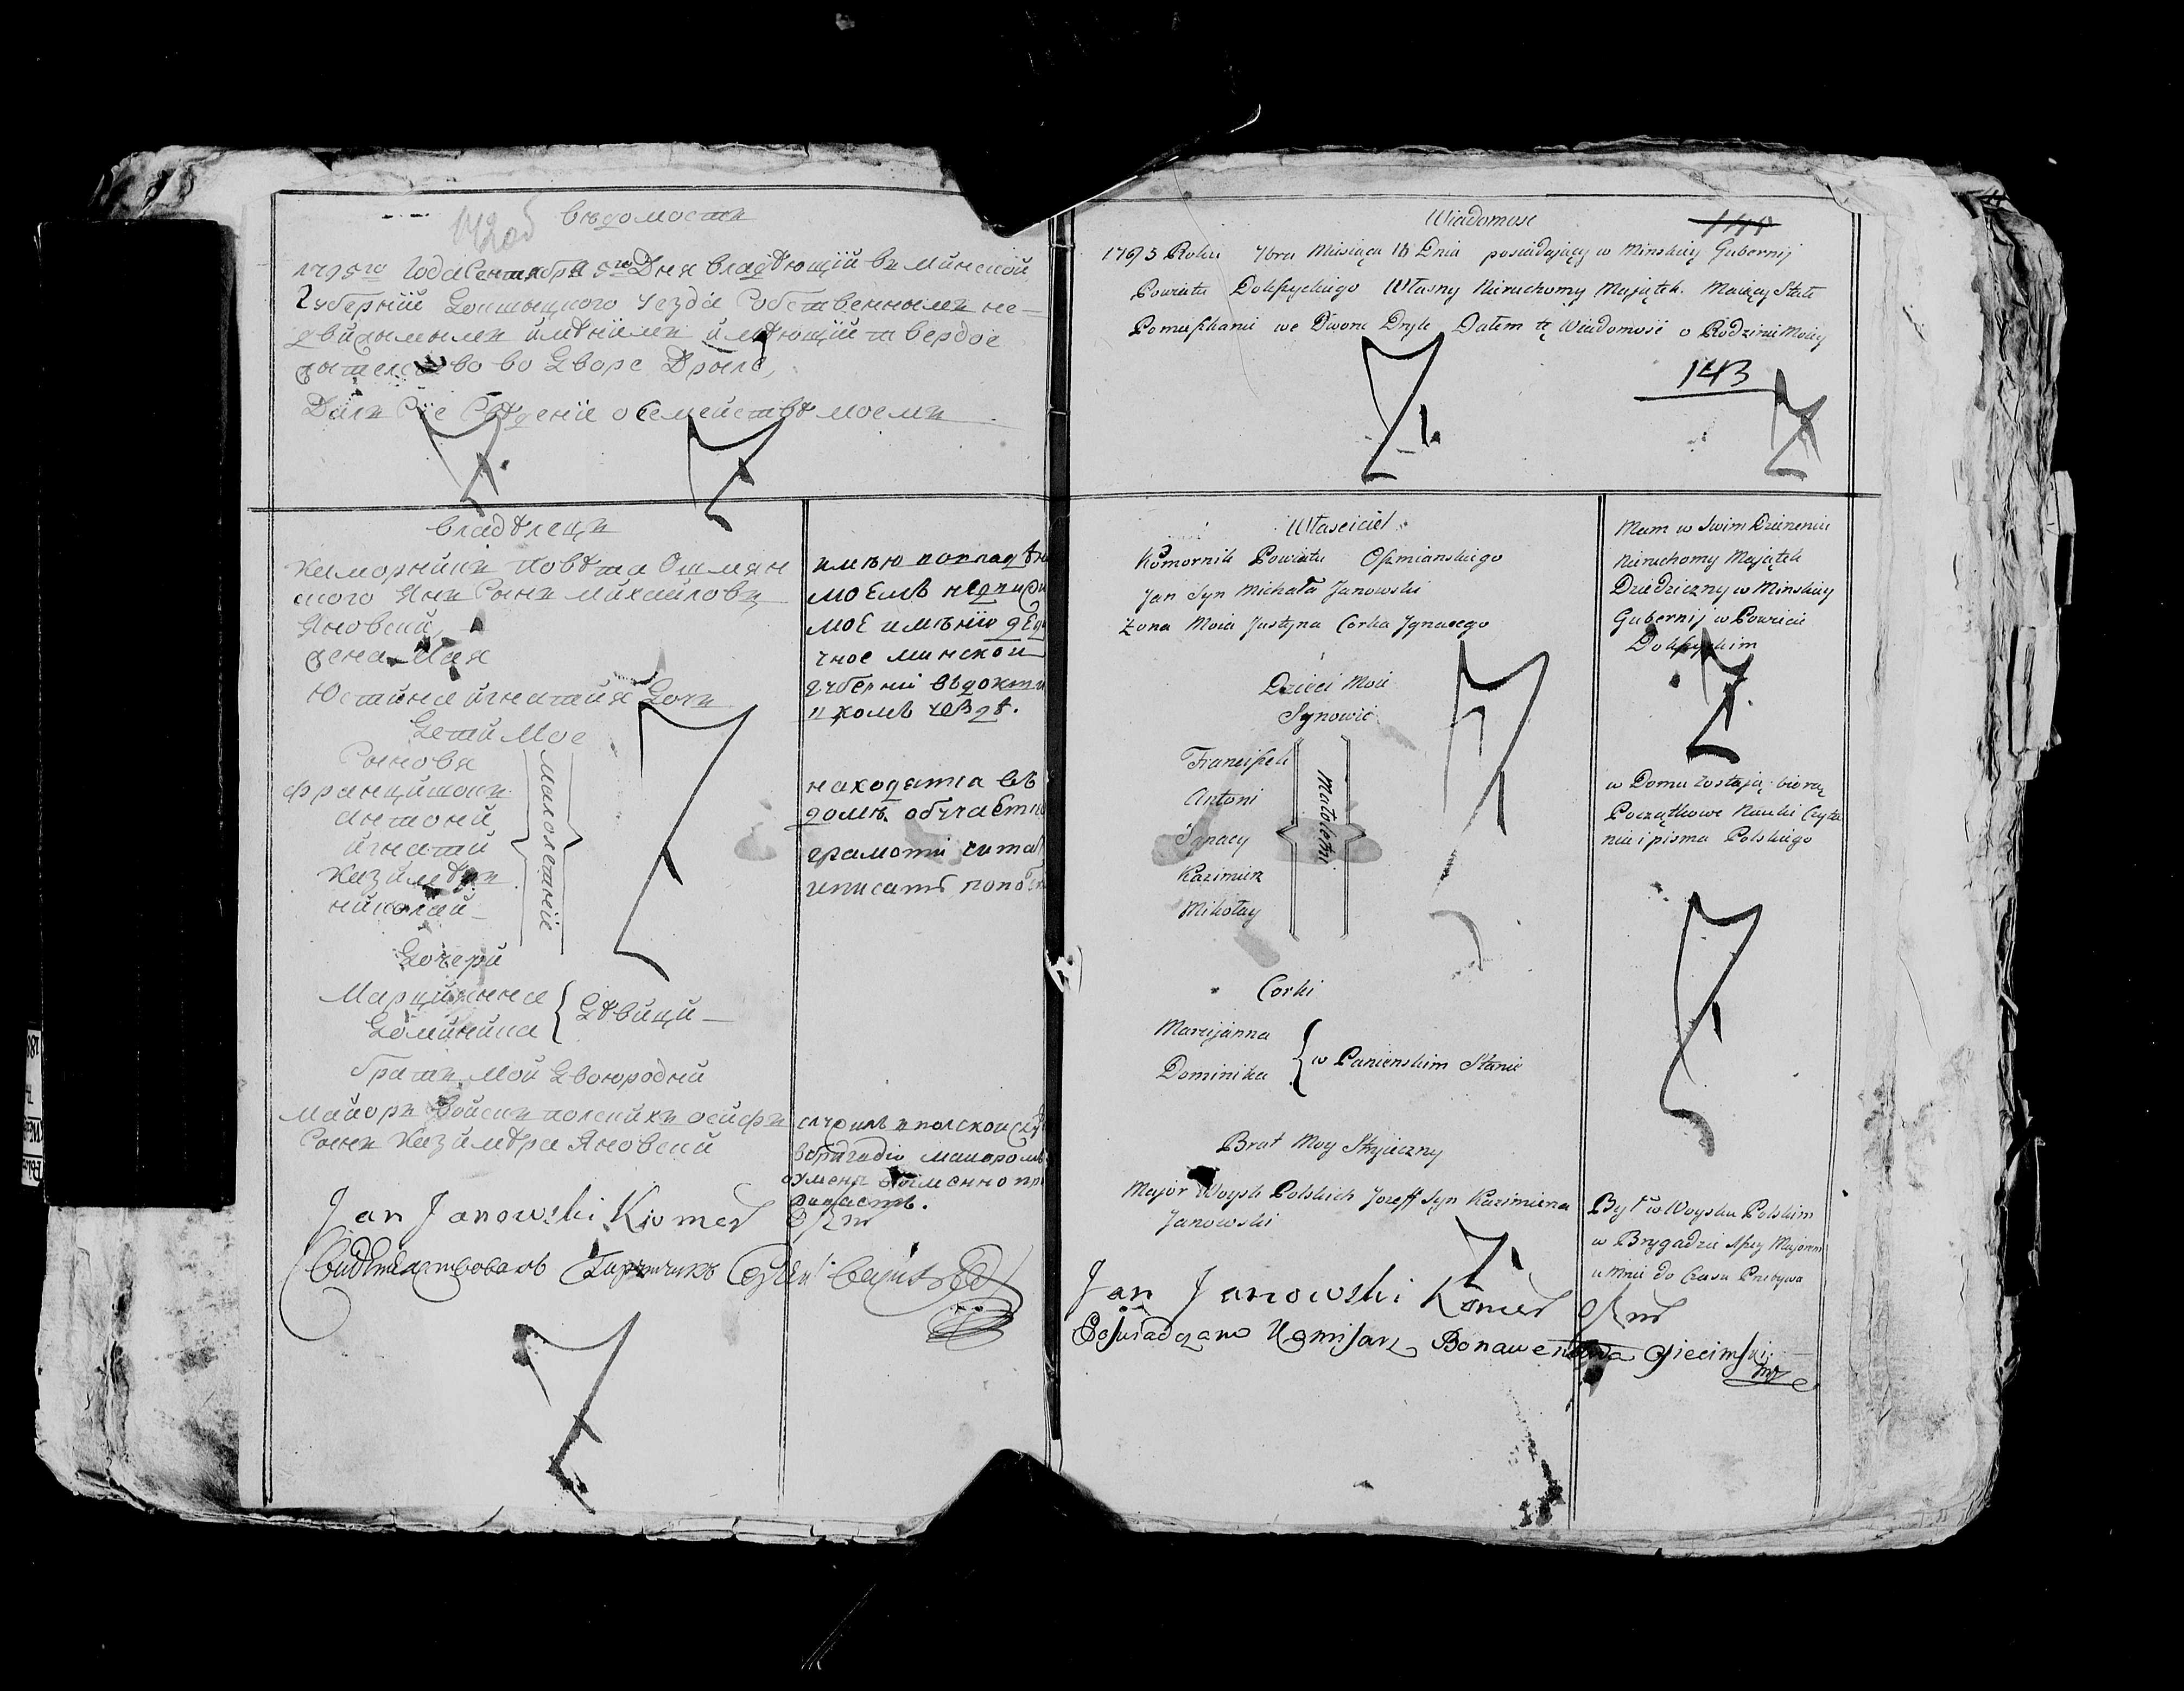 142об
Вѣдомость
1795го Года Сентября 5го Дня владѣющій въ Минской
Губерніи Докшыцкого Уезда Собственнымъ не-
двйжымымъ имѣніимъ имѣющій твердое
жытелство во Дворе Дрыле,
Далъ Сіе Свѣденіе о Семействѣ моемъ
Владѣлецъ
Каморникъ Повѣта Ошмян
ского Янъ Сынъ Михайловъ
Яновский
жена Мая
Юстина Игнатия Дочъ
Дети Мое
Сыновя
Францишокъ
Антоній
Игнатий
Казимѣръ
Николай
малолетніе
Дочери
Марцыянна
Доминика
Дѣвици
Братъ Мой Двоюродній
Майоръ Войскъ полскихъ Осифъ
Сынъ Казимѣра Яновский
имѣю во влад
моемъ недвижи
мое имѣнiе деди
чное минской
губерніи въ докши
цкомъ уездѣ.
находятца въ
домѣ. обучаетца
грамоти читат
и писать по по
служилъ в полской
в бригадіи маиоромъ
Jan Janowski Komor Oszm
Свидѣтельствовалъ
Wiadomosc
140
1795 Roku 7bra Miesiąca 18 Dnia posiadający w Minskiey Gubernij
Powiatu Dokszyckiego Własny Nieruchomy Majątek. Maiący Stałe
Pomieszkanie we Dworze Dryle Dałem tę Wiadomość o Rodzinie Moiey
143
Właściciel
Komornik Powiatu Oszmianskiego
Jan Syn Michała Janowski
Zona Moia Justyna Corka Jgnacego
Dzieci Moie
Synowie
Franciszek
Antoni
Jgnacy
Kazimierz
Mikołay
Małoletni
Corki
Marcijanna
Dominika
w Panienskim Stanie
Brat Moy Stryieczny
Major Woysk Polskich Jozeff Syn Kazimierza
Janowski
Mam w Swim Dzierzeniu
Nieruchomy Majątek
Dziedziczny w Minskiey
Gubernij w Powiecie
Dokszyckim
w Domu zostają biorą
Początkowe Nauki Czyta
nia i pisma Polskiego
Był w Woysku Polskim
w Brygadzie Majorem
u Mnie do Czasu Przebywa
Jan Janowski Komor Oszm
Poswiadczam Komisarz Bonawentura